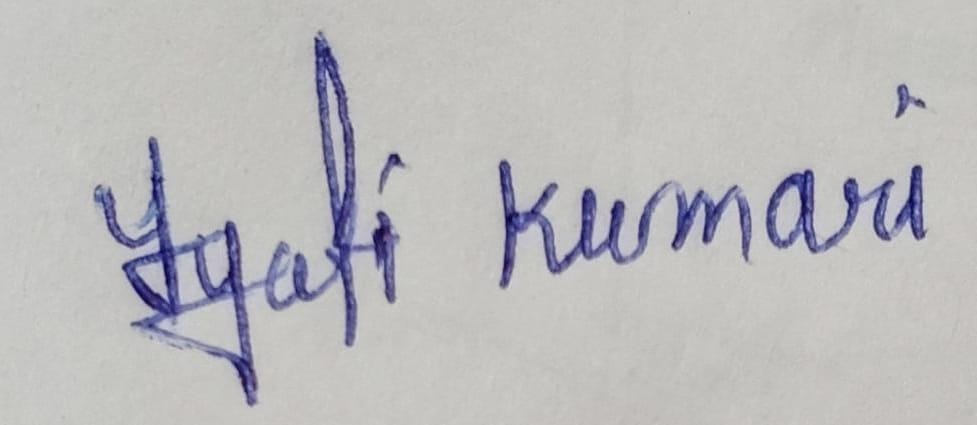 Jyoti Kumari